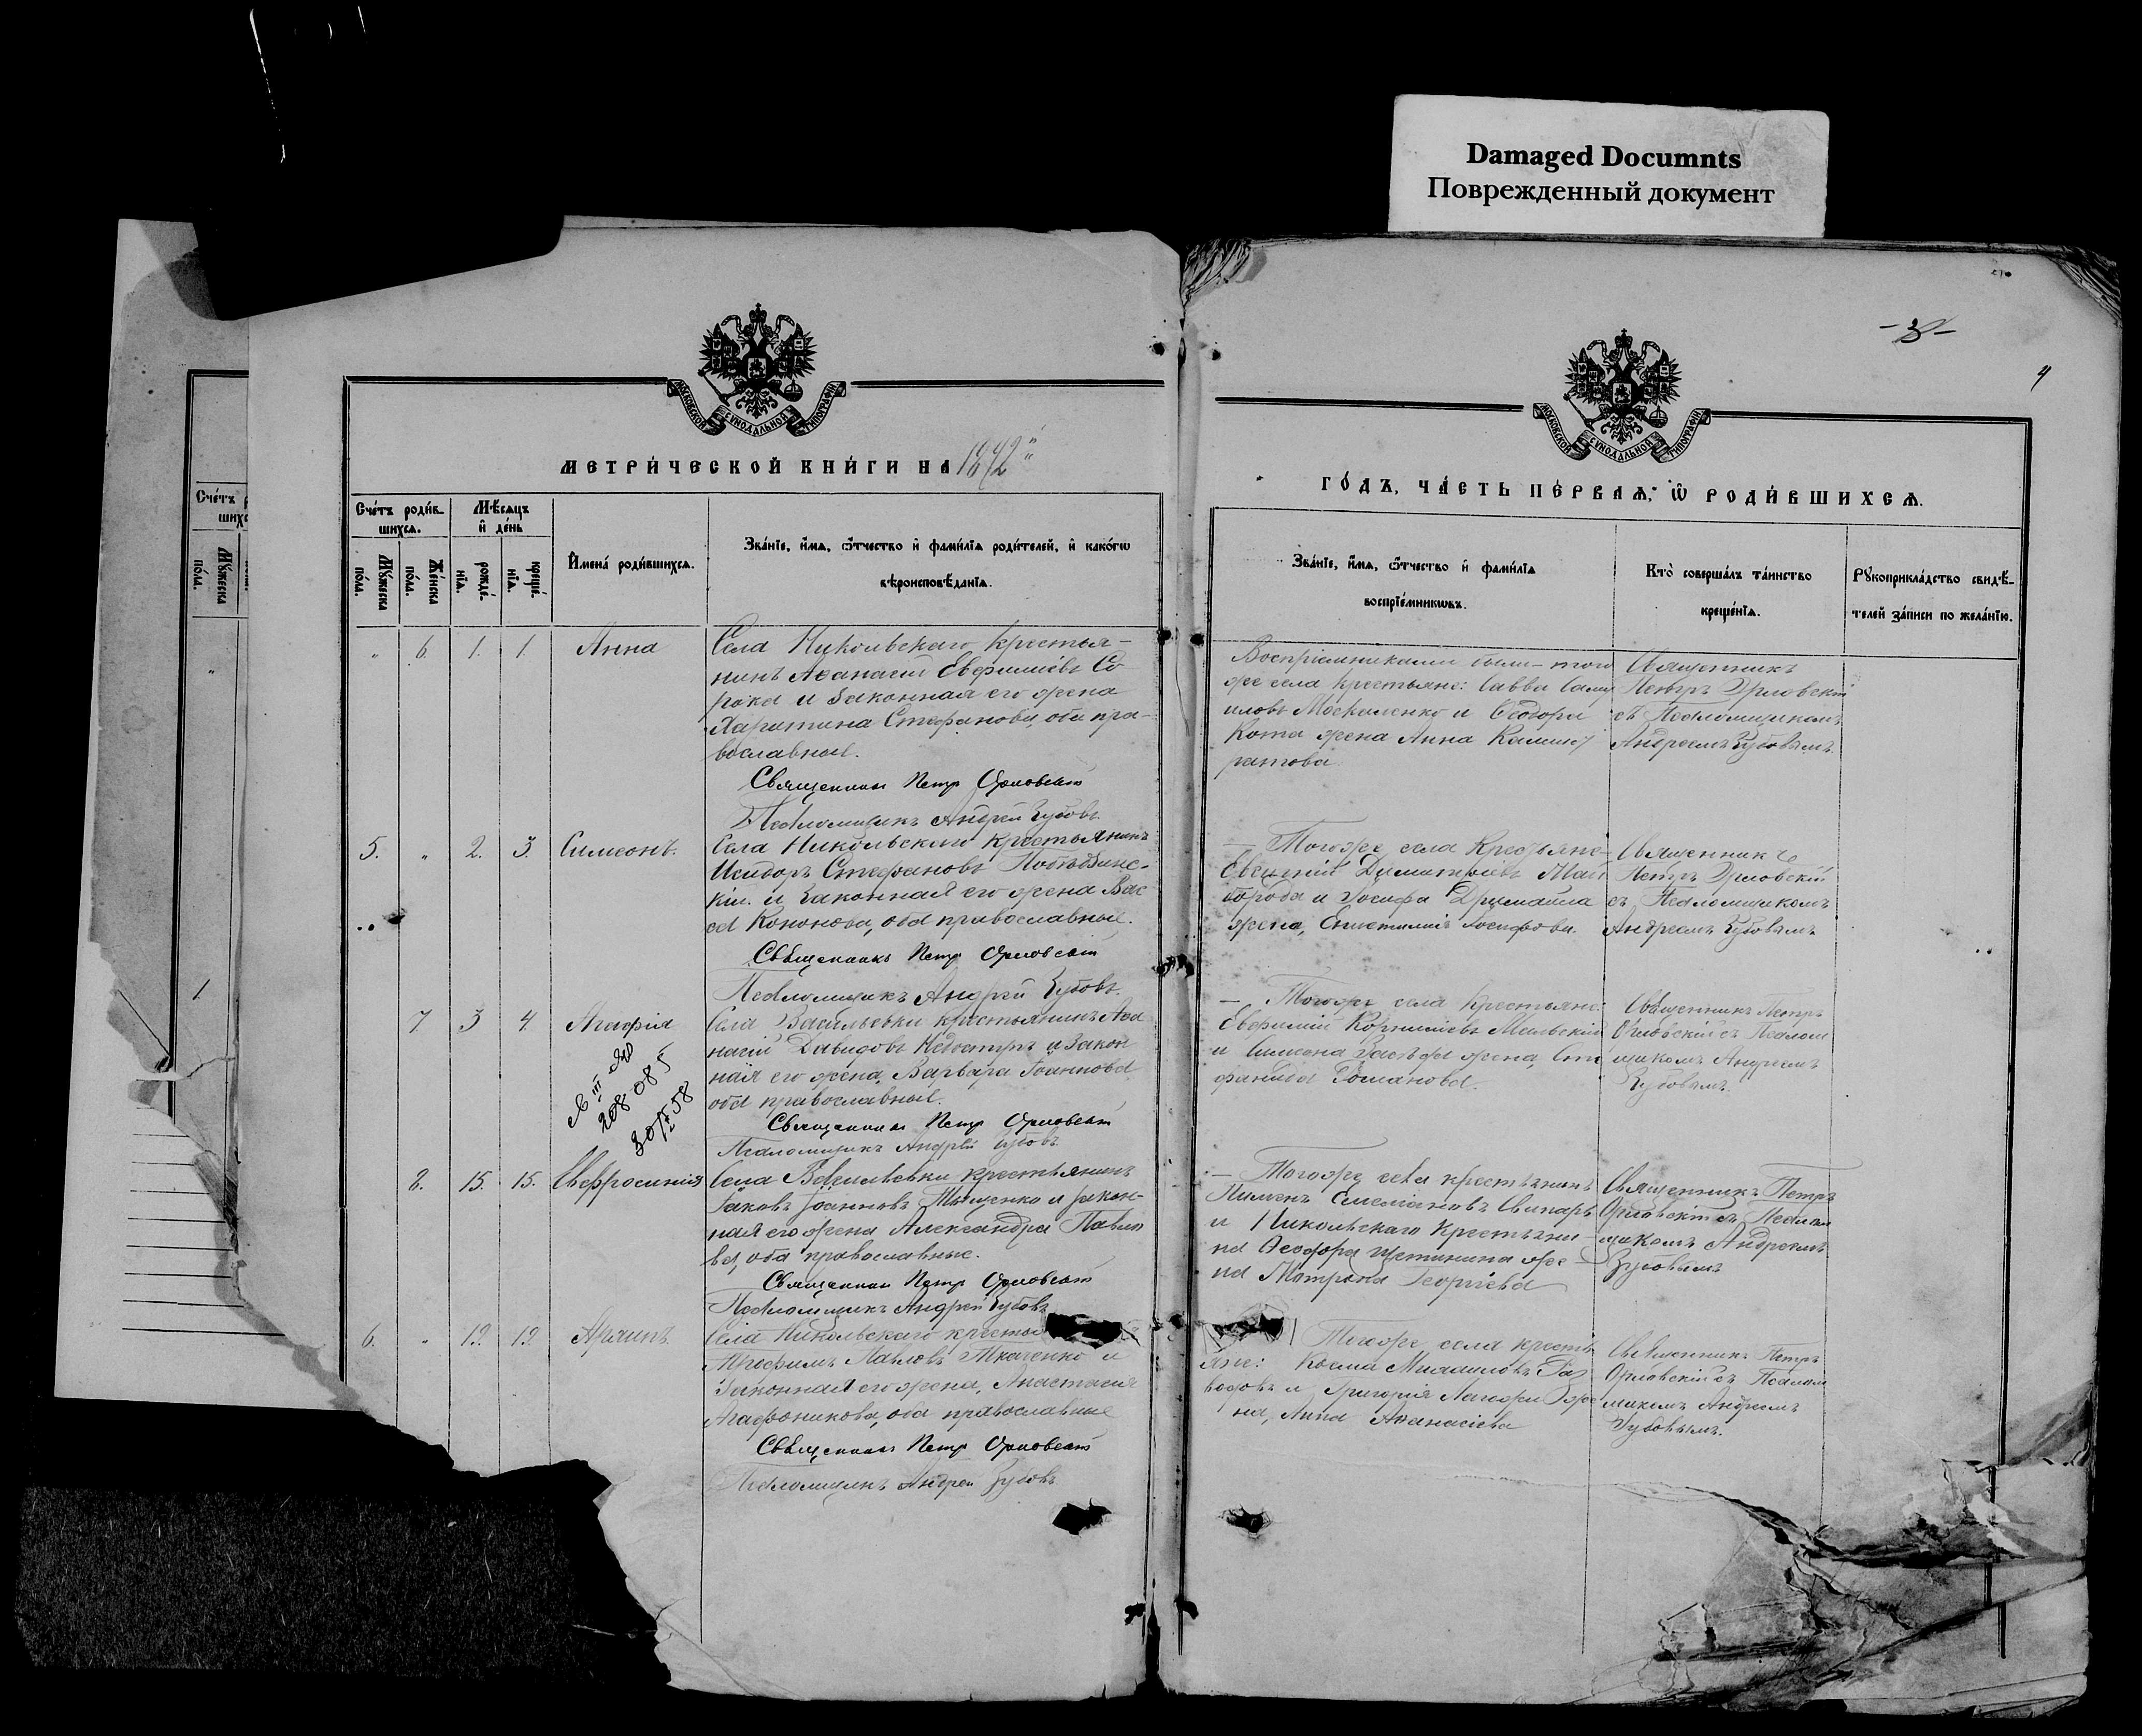 Damaged Documnts
Поврежденный документ
-3-
4
МОСКОВСКОЙ СѴНОДАЛЬНОЙ ТИПОГРАФІИ
МОСКОВСКОЙ СѴНОДАЛЬНОЙ ТИПОГРАФІИ
МЕТРИ́ЧЕСКОЙ КНИ́ГИ НА
ГО́ДЪ, ЧА́СТЬ ПЕ́РВАѦ, Ѡ҆ РОДИ́ВШИХСѦ.
Сче́тъ роди́в-
шихсѧ.
Мꙋ́жеска по́ла.
Же́нска по́ла.
Мѣ́сѧцъ
и҆ де́нь
рожде́-
нїѧ.
креще́-
нїѧ.
И҆мена̀ роди́вшихсѧ.
Зва́нїе, и҆́мѧ, ѻ҆́тчество и҆ фами́лїѧ роди́телей, и҆ како́гѡ
вѣроисповѣ́данїѧ.
Зва́нїе, и҆́мѧ, ѻ҆́тчество и҆ фами́лїѧ
воспрїе́мникѡвъ.
Кто̀ соверша́лъ та́инство
креще́нїѧ.
Рꙋкоприкла́дство свидѣ́-
телей за́писи по жела́нїю.
" 6. 1. 1. Анна
Села Никольскаго крестья-
нинъ Аѳанасій Евфиміевъ Со
рока и законная его жена
Харитина Стефанова, оба пра-
вославные.
Священникъ Петръ Орловскій
Псаломщикъ Андрей Зубовъ
Воспріемниками были - того
же села крестьяне: Савва Саму
иловъ Москаленко и Ѳеодора
Кота жена Анна
Священникъ
Петръ Орловскій
съ Псаломщикомъ
Андреемъ Зубовымъ.
5. " 2. 3. Симеонъ.
Села Никольскаго крестьянинъ
Исидоръ Стефановъ
кій и законная его жена Вас
са Кононова, оба православные.
Священникъ Петръ Орловскій
Псаломщикъ Андрей Зубовъ.
- Того же села крестьяне
Евгеній Димитріевъ Май
борода и Іосифа
жена, Епистимія Іосифова.
Священникъ
Петръ Орловскій
съ Псаломщикомъ
Андреемъ Зубовымъ
7. 3 4. Агафія
208085
Села Васильевки крестьянинъ Аѳа
насій Давидовъ и закон
ная его жена, Варвара Іоаннова
оба православные.
Священникъ Петръ Орловскій
Псаломщикъ Андрей Зубовъ
- Того же села крестьяне:
Евфимій Корниліевъ
и Симеона жена, Сте
фанида Романова.
Священникъ Петръ
Орловскій съ Псалом
щикомъ Андреемъ
Зубовымъ.
8. 15. 15. Евфросинія
Села Васильевки крестьянинъ
Іаковъ Іоанновъ Тищенко и закон-
ная его жена Александра Павло
ва, оба православные.
Священникъ Петръ Орловскій
Псаломщикъ Андрей Зубовъ
- Того же села крестьянинъ
Пименъ Емеліановъ Свинарь
и Никольскаго крестьяни-
на Ѳеодора Щетинина же-
на Матрона Георгіева
Священникъ Петръ
Орловскій съ Псалом
щикомъ Андреемъ
Зубовымъ
6. " 19. 19.
Села Никольскаго кресть
Трофимъ Павловъ Ткаченко и
законная его жена, Анастасія
Агафоникова, оба православные
Священникъ Петръ Орловскій
Псаломщикъ Андрей Зубовъ
Того же села кресть
яне: Косма Михаиловъ
и Григорія же
на, Анна Аѳанасіева
Священникъ Петръ
Орловскій съ Псалом
щикомъ Андреемъ
Зубовымъ.
Сче́тъ
шихсѧ
Мꙋ́жеска по́ла.
"
1.